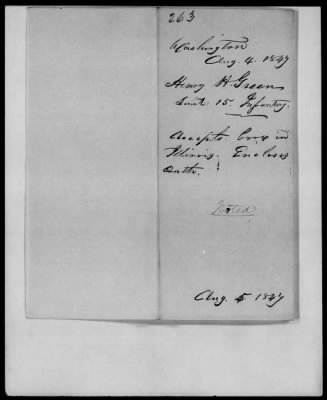 263
Washington
Aug. 4. 1847
Henry H. Green
Lieut. 15. Infantry.
Accepts
Illinois. Encloses
oath.
Noted
Aug. 5 1847